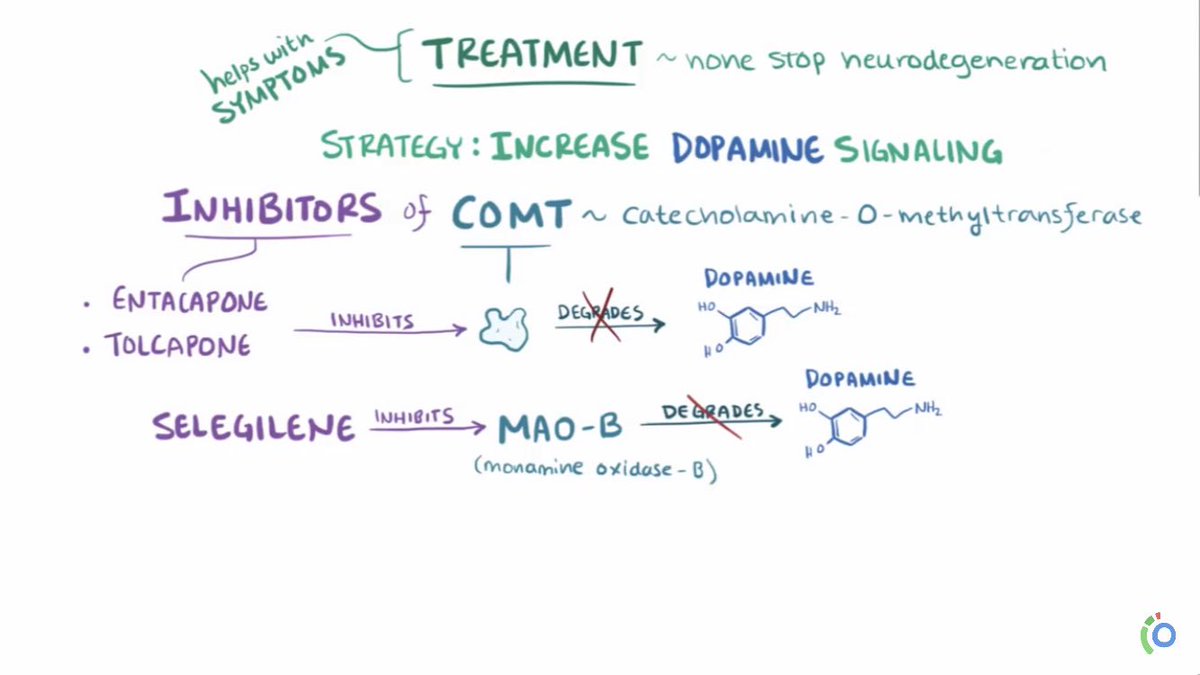 helps with
SYMPTOMS
TREATMENT ~ none stop neurodegeneration
STRATEGY: INCREASE DOPAMINE SIGNALING
INHIBITORS of COMT ~ catecholamine-O-methyltransferase
• ENTACAPONE
• TOLCAPONE
INHIBITS
DEGRADES
DOPAMINE
HO
NH2
HO
SELEGILENE INHIBITS MAO-B DEGRADES
(monamine oxidase-B)
DOPAMINE
HO
NH2
HO